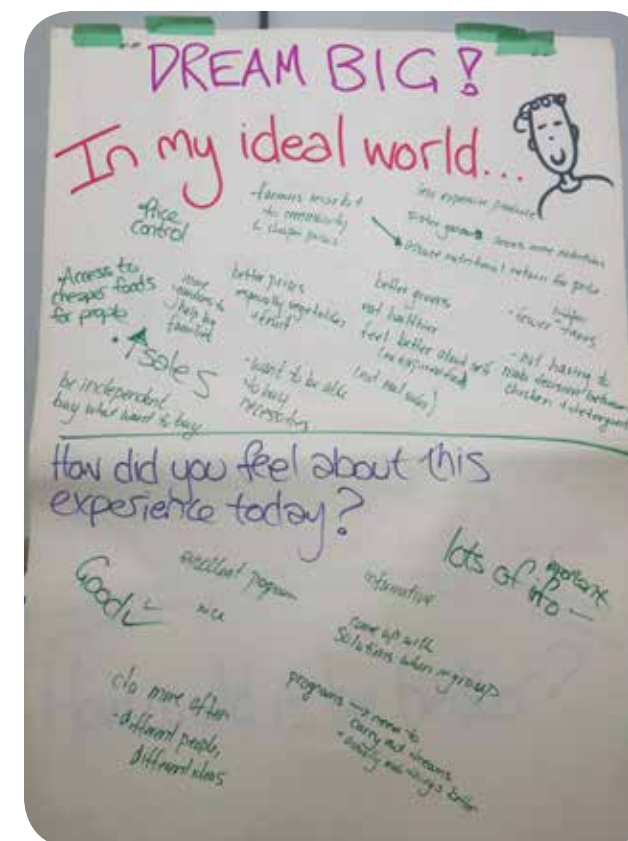 DREAM BIG!
In my ideal world...
Price
control
-farmers market
to community
& cheaper prices
less expensive produce
greater nutritional return for price
Access to
cheaper foods
for people
more
vouchers to
help by
families
better prices
especially vegetables
+ fruit
better grocers
eat healthier
feel better about self
(not mal
fewer
- not having to
make decisions between
chicken + detergent
• ↑ sales
be independent,
buy what want to buy
- want to be able
to buy
necessities
How did you feel about this
experience today?
Good
excellent program
nice
informative
lots of info
important
come up with
solutions when in group
do more often
-different people,
different ideas
programs → need to
carry out dreams